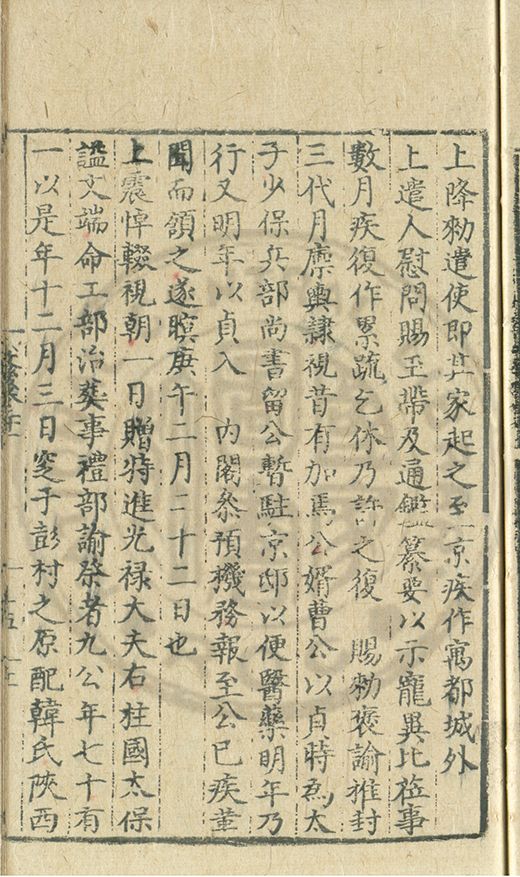 上降勑遣使即其家起之至京疾作寓都城外
上遣人慰問賜玉帶及通鑑纂要以示寵異比莅事
數月疾復作累疏乞休乃許之復 賜勑褒諭推封
三代月廩輿隷視昔有加焉公婿曹公以貞時為太
子少保兵部尚書留公暫駐京邸以便醫藥明年乃
行又明年以貞入 内閣叅預機務報至公已疾革
聞而領之遂暝庚午二月二十二日也
上震悼輟視朝一日贈特進光禄大夫右柱國太保
謚文端命工部治葬事禮部諭祭者九公年七十有
一以是年十二月三日窆于彭村之原配韓氏陝西